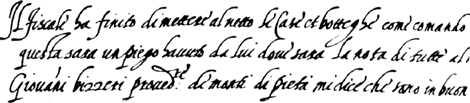 Il fiscale ha finito di mettere al netto le Case et botteghe come comando
questa sara un piego havuto da lui dove sara la nota di tutte al.
Giovani bizzeri proved.re de monti di pietà mi dice che sono in buon